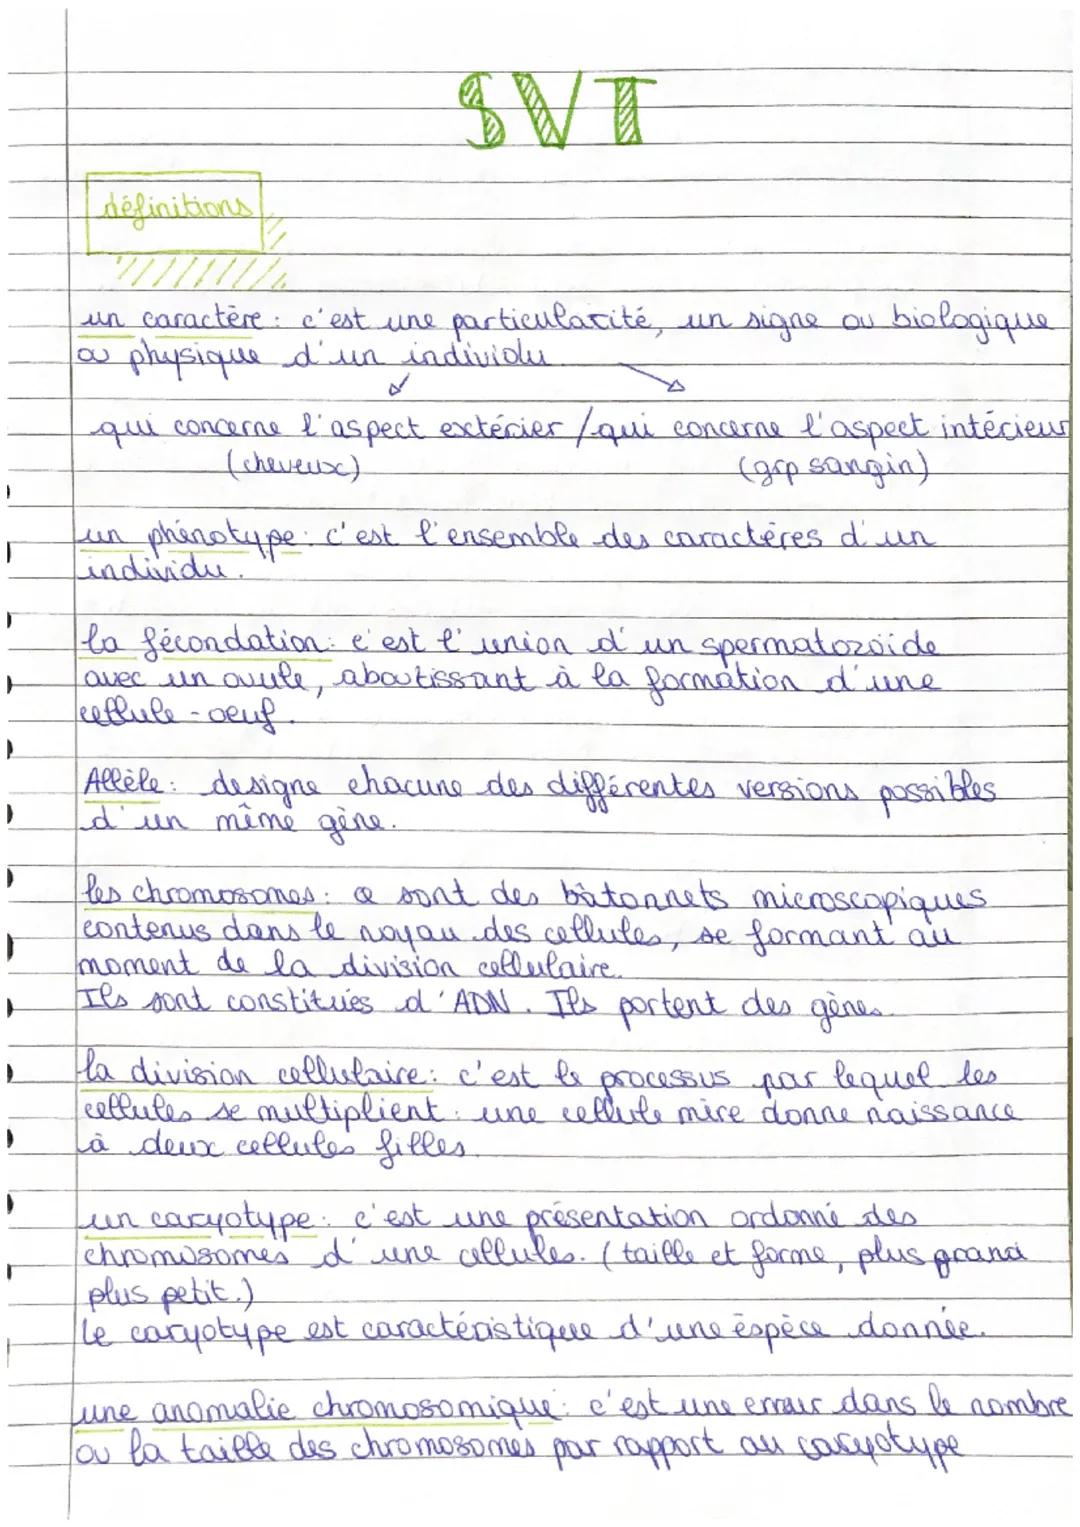 SVT
définitions
un caractère : c'est une particularité, un signe ou biologique
ou physique d'un individu
qui concerne l'aspect extérier / qui concerne l'aspect intérieur
(cheveux) (grp sangin)
un phénotype : c'est l'ensemble des caractères d'un
individu.
la fécondation : c'est l'union d'un spermatozoïde
avec un ovule, aboutissant à la formation d'une
cellule-oeuf.
Allèle : designe chacune des différentes versions possibles
d'un même gène.
les chromosomes : ce sont des bâtonnets microscopiques
contenus dans le noyau des cellules, se formant au
moment de la division cellulaire.
Ils sont constitués d'ADN. Ils portent des gènes.
la division cellulaire : c'est le processus par lequel les
cellules se multiplient : une cellule mère donne naissance
à deux cellules filles.
un caryotype : c'est une présentation ordonné des
chromosomes d'une cellules. (taille et forme, plus grand
plus petit.)
le caryotype est caractéristique d'une éspèce donnée.
une anomalie chromosomique : c'est une erreur dans le nombre
ou la taille des chromosomes par rapport au caryotype